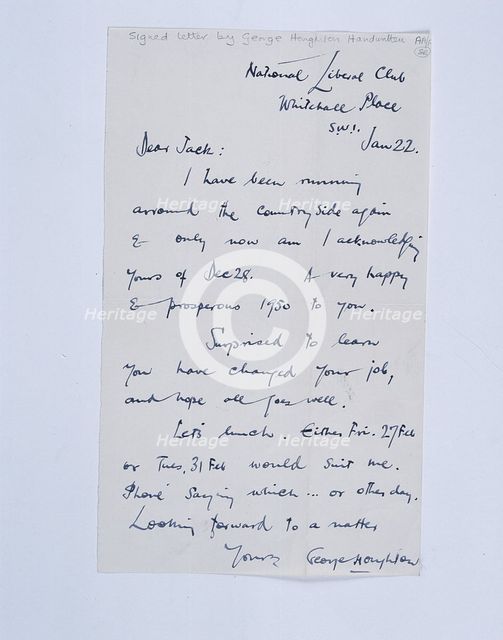 Signed letter by George Houghton Handwritten AA/
SE
National Liberal Club
Whitehall Place
S.W.1.
Jan 22.
Dear Jack:
I have been running
arround the countryside again
& only now am I acknowledging
yours of Dec 28. A very happy
& prosperous 1950 to you.
Surprised to learn
you have changed your job,
and hope all goes well.
Let's lunch. Either Fri. 27 Feb
or Tues. 31 Feb would suit me.
'Phone saying which... or other day.
Looking forward to a natter
Yours George Houghton
Heritage Heritage
Heritage Heritage
Heritage Heritage
©